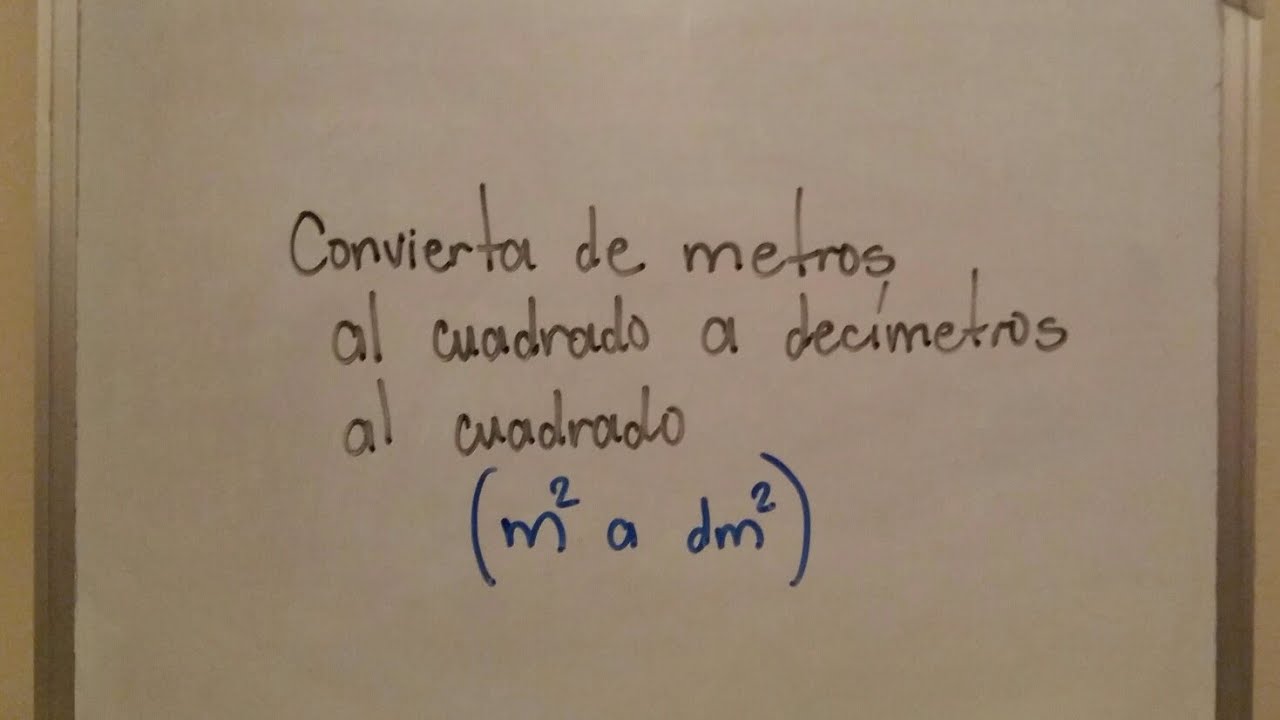 Convierta de metros
al cuadrado a decímetros
al cuadrado
(m² a dm²)